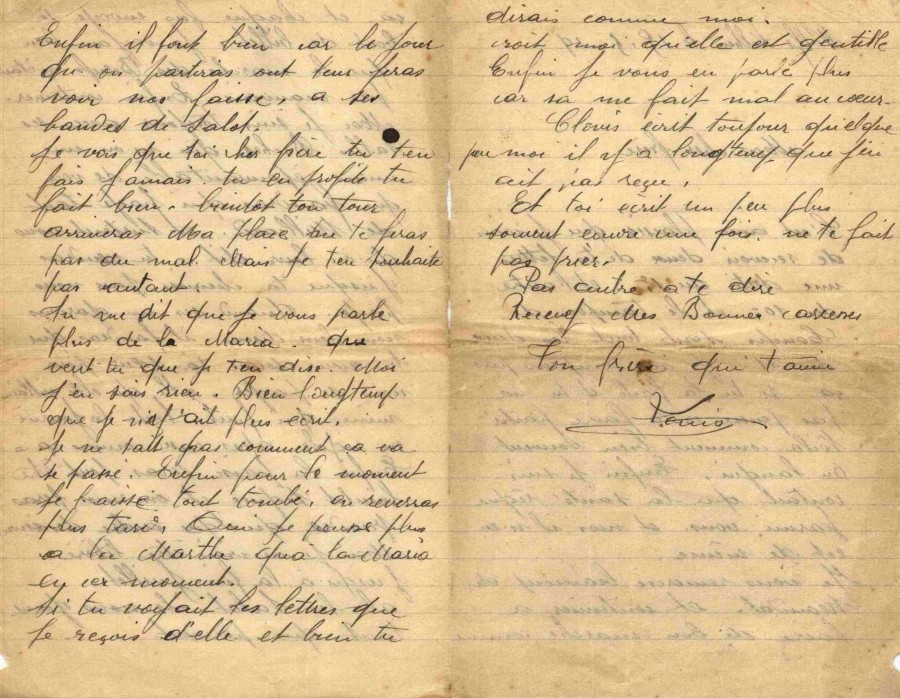 Enfin il font bien car le jour
qu on partiras ont leur feras
voir nos faisse, a ses
bandes de Salot.
Je vois que toi cher frère tu t'en
fais jamais tu en profite tu
fait bien. bientot ton tour
arriveras Ma place tu te feras
pas du mal. Mais je t'en souhaite
pas autant
Tu me dit que je vous parle
plus de la Maria. que
veut tu que je t'en dise. Moi
j'en sais rien. Bien longtemp
que je n'ait plus ecrit.
Je ne sait pas comment ça va
se passe. Enfin pour le moment
Je laisse tout tombé, on reverras
plus tard. Oui je pense plus
a la Marthe qu'a la Maria
en cer moment.
Si tu voyait les lettres que
Je reçois d'elle et bien tu
dirais comme moi.
croit moi qu'elle est gentille
Enfin Je vous en parle plus
car sa me fait mal au cœur.
Clovis ecrit toujour quelque
peu moi il y a longtemp que j'en
ait pas reçu.
Et toi écrit un peu plus
souvent encore une fois. ne te fait
pas prier.
Pas autre a te dire
Recevez Mes Bonnes caresses
Ton frère qui t'aime
Louis